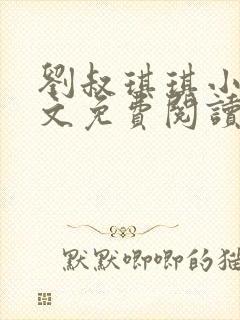 劉叔琪琪小
文免費閱讀
默默唧唧的猫